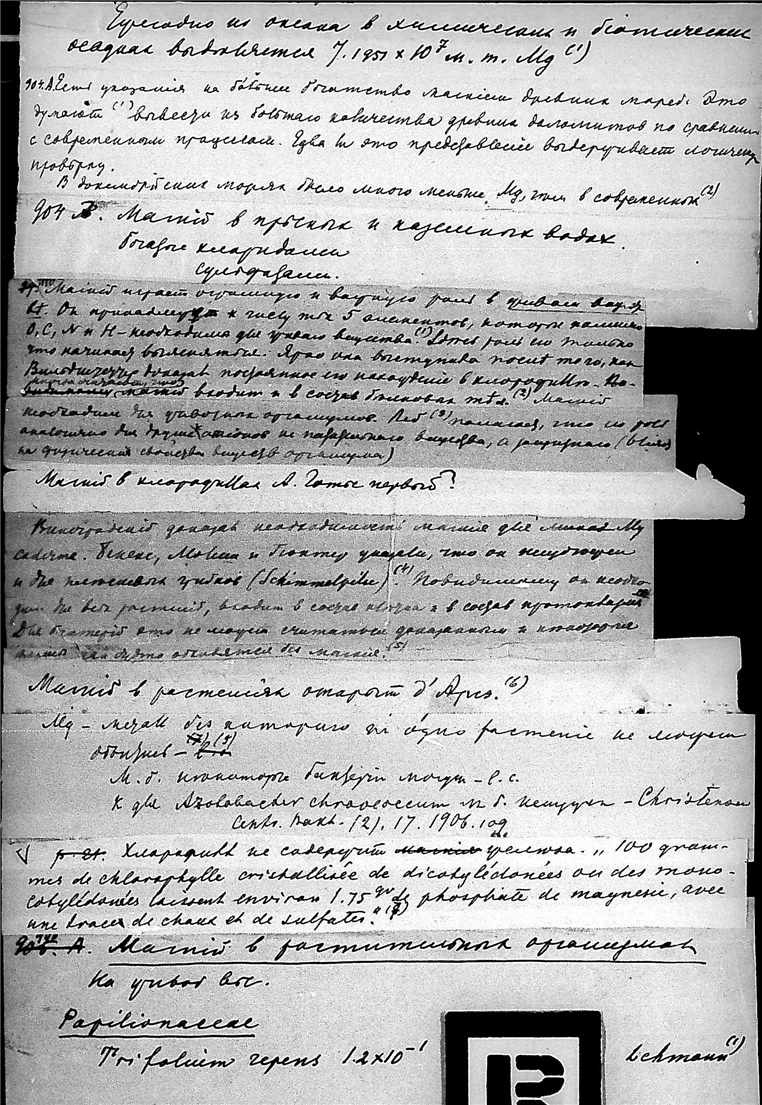 Ежегодно из океана в химических и биотических
осадках выделяется 7.1951 × 10⁷ м. т. Mg (1)
904.А. Есть указания на большее богатство магнием древних морей. Это
думают (1) вывести из большего количества древних доломитов по сравнению
с современным процессом. Едва ли это представление выдерживает логическую
проверку.
В докембрийских морях было много меньше Mg, чем в современных (2)
904 В. Магний в пресных и наземных водах.
Богатые хлоридами
сульфатами.
Магний играет огромную и важную роль в живом вещ.
Он принадлежит к числу тех 5 элементов, которые помимо
О, С, N и Н – необходимы для живого вещества. (1) роль его только
что начинает выясняться. Ярко она выступила после того, как
Вильштеттер доказал постоянное его нахождение в хлорофилле.
магний входит и в состав белковых тел. (2) Магний
необходим для животных организмов. Лёб (3) полагает, что его роль
аналогична для других катионов не питательного вещества, а защитного (
на физические свойства веществ организма)
Магний в хлорофиллах А. Готье первый?
Виноградский доказал необходимость магния для
Бенеке, Молиш и Гюнтер указали, что он нужен
и для плесневых грибков (Schimmelpilze) (4). Повидимому он необхо-
дим для всех растений, входит в состав и в состав протоплазмы
Для бактерий это не может считаться доказанным и некоторые
обходятся без магния. (5)
Магний в растениях открыт d'Арсе. (6)
Mg – металл без которого ни одно растение не может
обойтись – (7)
М. б. некоторые бактерии могут – l. c.
К для Azotobacter chroococcum м. б. не нужен – Christensen
Centr. Bakt. (2). 17. 1906. 109
Хлорофилл не содержит железа. „100 gram-
mes de chlorophylle cristallisée de dicotylédonées ou des mono-
cotylédonées laissent environ 1.75 gr de phosphate de magnésie, avec
une trace de chaux et de sulfates." (8)
А. Магний в растительных организмах
На живой вес.
Papilionaceae
Trifolium repens 1.2×10⁻¹ Lehmann (1)